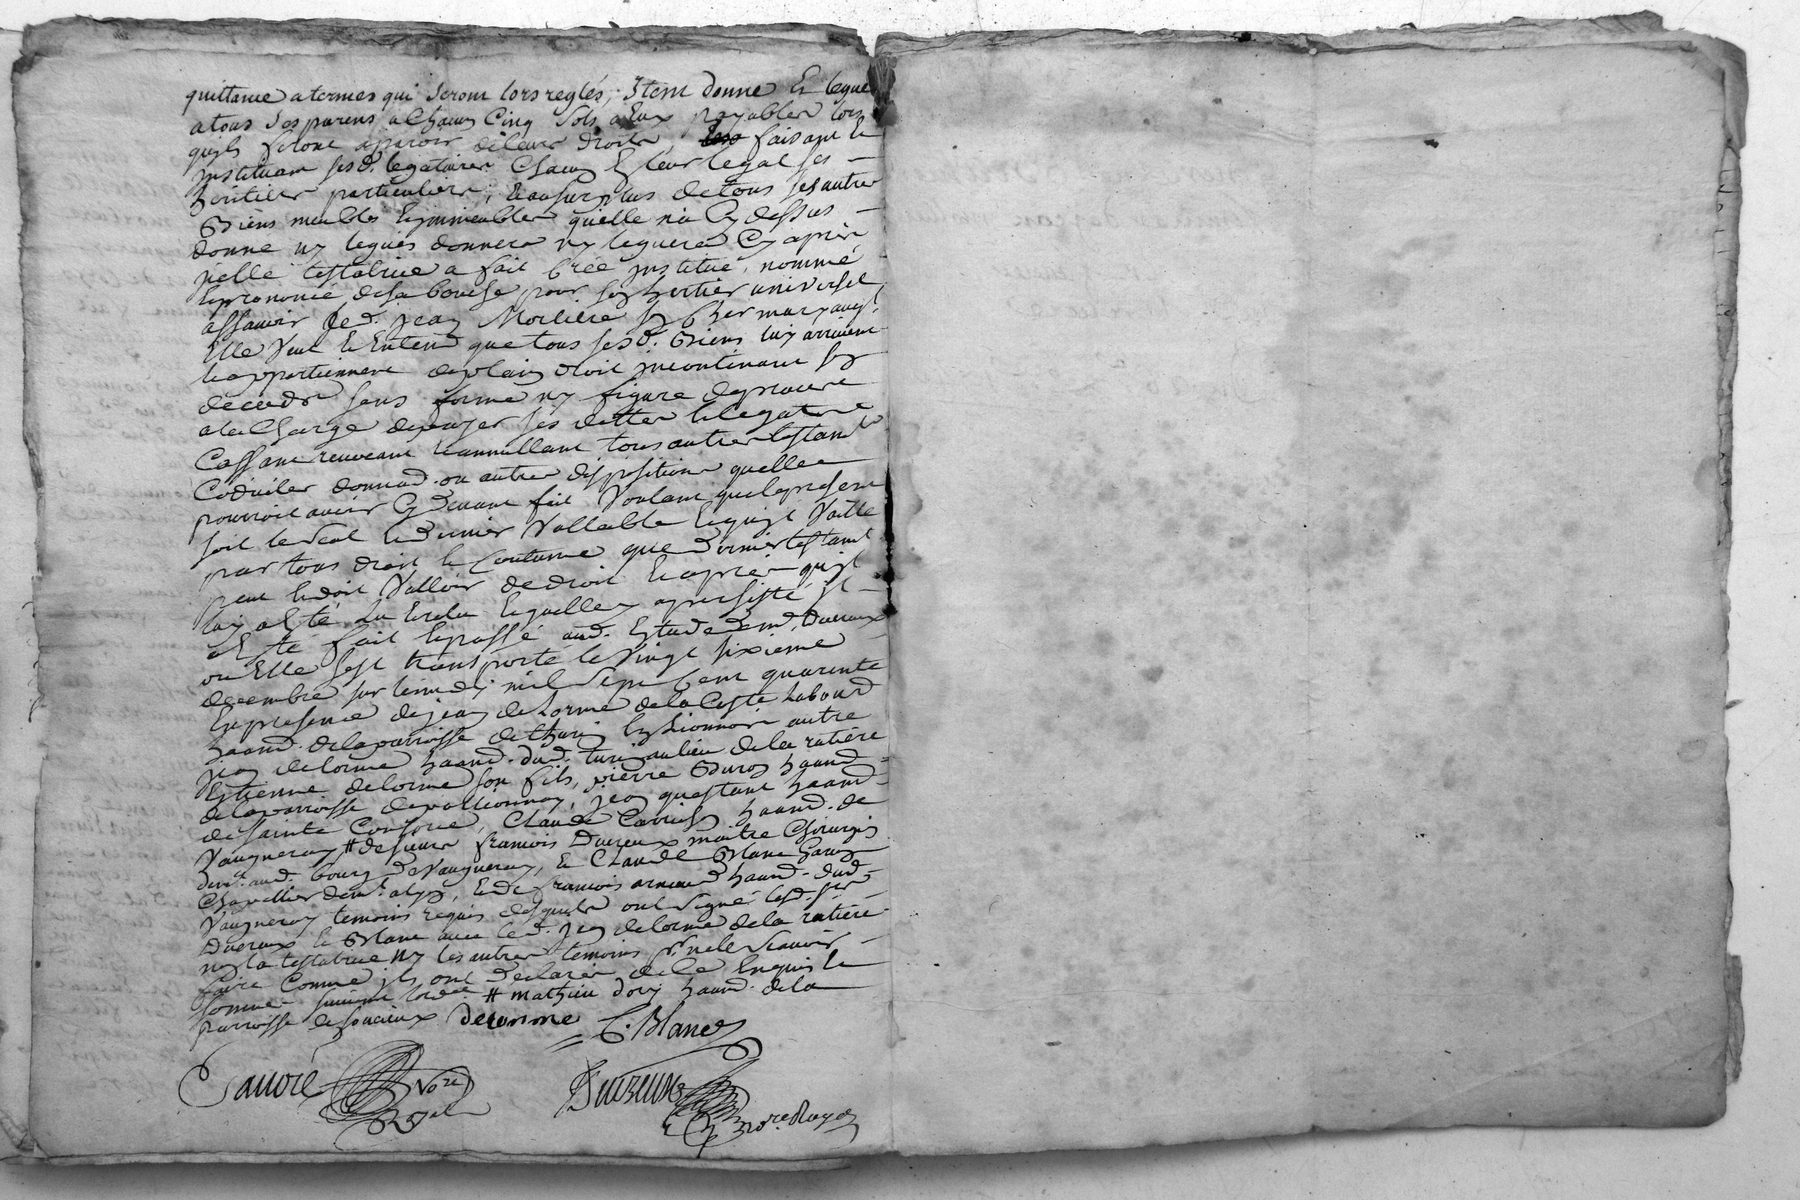 quittance a termes qui seront lors reglés, Item donne Et legue
a tous ses parens a Chacun Cinq Sols a Eux payables lors
quils feront aparoir de leurs droits, faisant Et
instituant ses d. legataires Chacun En leur legat ses
heritiers particuliers, Et au surplus de tous ses autres
Biens meubles Et immeubles quelle n'a Cy dessus
donne ny legués donnera ny leguera Cy après
jcelle testatrice a fait Crée institué, nommé
Et prononcé de sa bouche pour son heritier universel
assavoir led. jean Morliere son Cher mary auql.
Elle Veut Et Entend que tous sesd. Biens luy arrivent
Et appartiennent de plain droit incontinant son
decedz sans forme ny figure de proces
a la Charge de payer ses dettes Et legats
Cassant revocant Et annullant tous autres testamts
Codiciles donnaõ. ou autres dispositions quelle
pourroit avoir Cy devant fait Voulant que le present
soit le seul Et dernier Vallable Et quil Vaille
par tous droit Et Coutume que dernier testamt
peut Et doit Valloir de droit Et après quil
luy a Eté Lu Et relu Et quelle y a persisté Il
a Eté fait Et passé aud. Etude dud. Duvreux
ou Elle s'est transporté le Vingt sixieme
decembre sur le midy mil Sept Cent quarente
En presence de jean delorme de la Coste Labourd
haand. de la parroisse de thurin En Lionnois autre
jean delorme haand. dud. turin au lieu de la ratiere
Estienne delorme son fils, pierre haand
de la parroisse de pollionnay, jean questant haand
de sainte Consorce, Claude haand. de
Vaugneray # de sieur francois Duvreux maitre Chirurgien
demt. aud. bourg de Vaugneray, Et Claude Blanc Garçon
Chapellier demt. a lyon, Et de francois haand. dud
Vaugneray temoins requis desquels ont signé lesd. srs
Duvreux Et Blanc avec led. jean delorme de la ratiere
ny la testatrice ny les autres temoins pr. ne le scavoir
faire Comme ils ont declarés de Ce Enquis Et
sommés suivant lordce # mathieu dory haand. de la
parroisse de soucieux delorme C. Blanc
Favre Nore Royal
Duvreux Nore. Royal